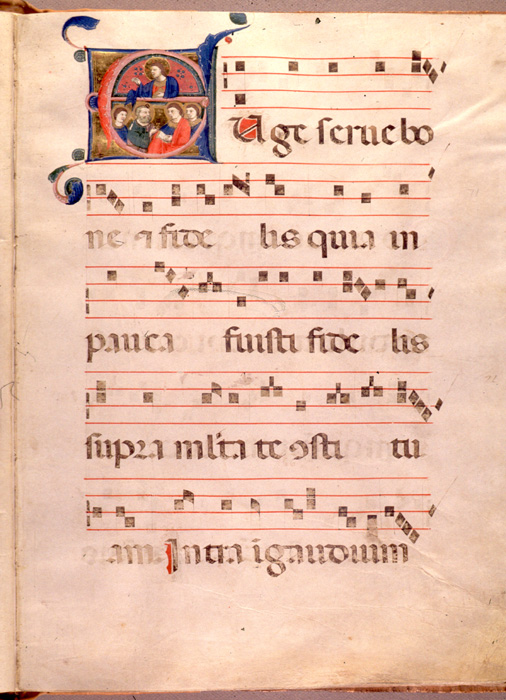 EUge serue bo
ne ⁊ fide lis quia in
pauca fuisti fide lis
supra mlta te ꝯsti tu
am. Intra i gaudium